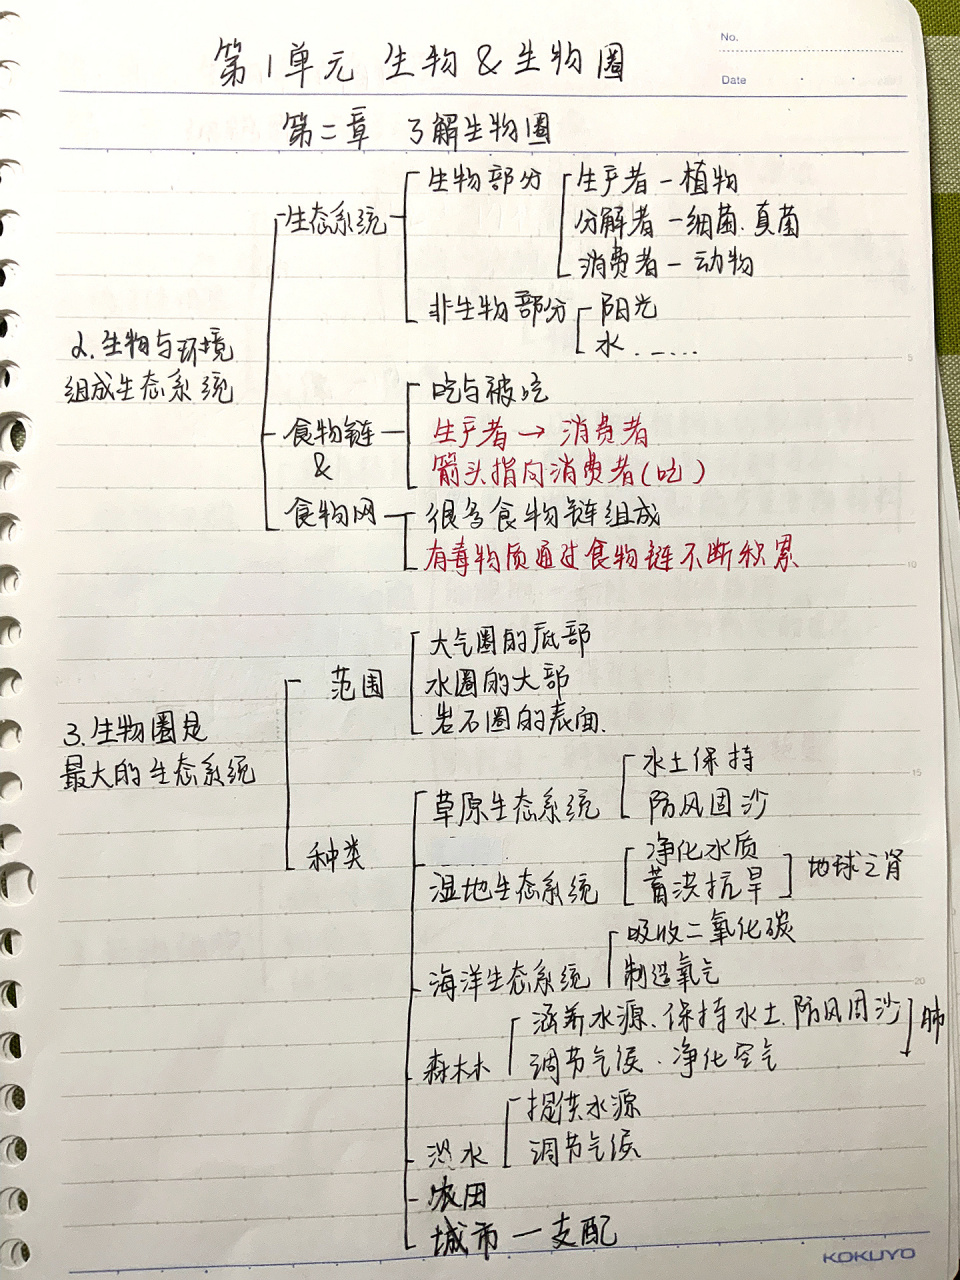 No.
Date
第1单元 生物&生物圈
第二章 了解生物圈
2.生物与环境
组成生态系统
生态系统
生物部分
生产者－植物
分解者－细菌.真菌
消费者－动物
非生物部分
阳光
水......
食物链
&
食物网
吃与被吃
生产者→消费者
箭头指向消费者(吃)
很多食物链组成
有毒物质通过食物链不断积累
3.生物圈是
最大的生态系统
范围
大气圈的底部
水圈的大部
岩石圈的表面.
种类
草原生态系统
水土保持
防风固沙
湿地生态系统
净化水质
蓄洪抗旱
地球之肾
海洋生态系统
吸收二氧化碳
制造氧气
森林
涵养水源、保持水土、防风固沙
调节气候.净化空气
肺
淡水
提供水源
调节气候
农田
城市－支配
5
10
15
20
KOKUYO